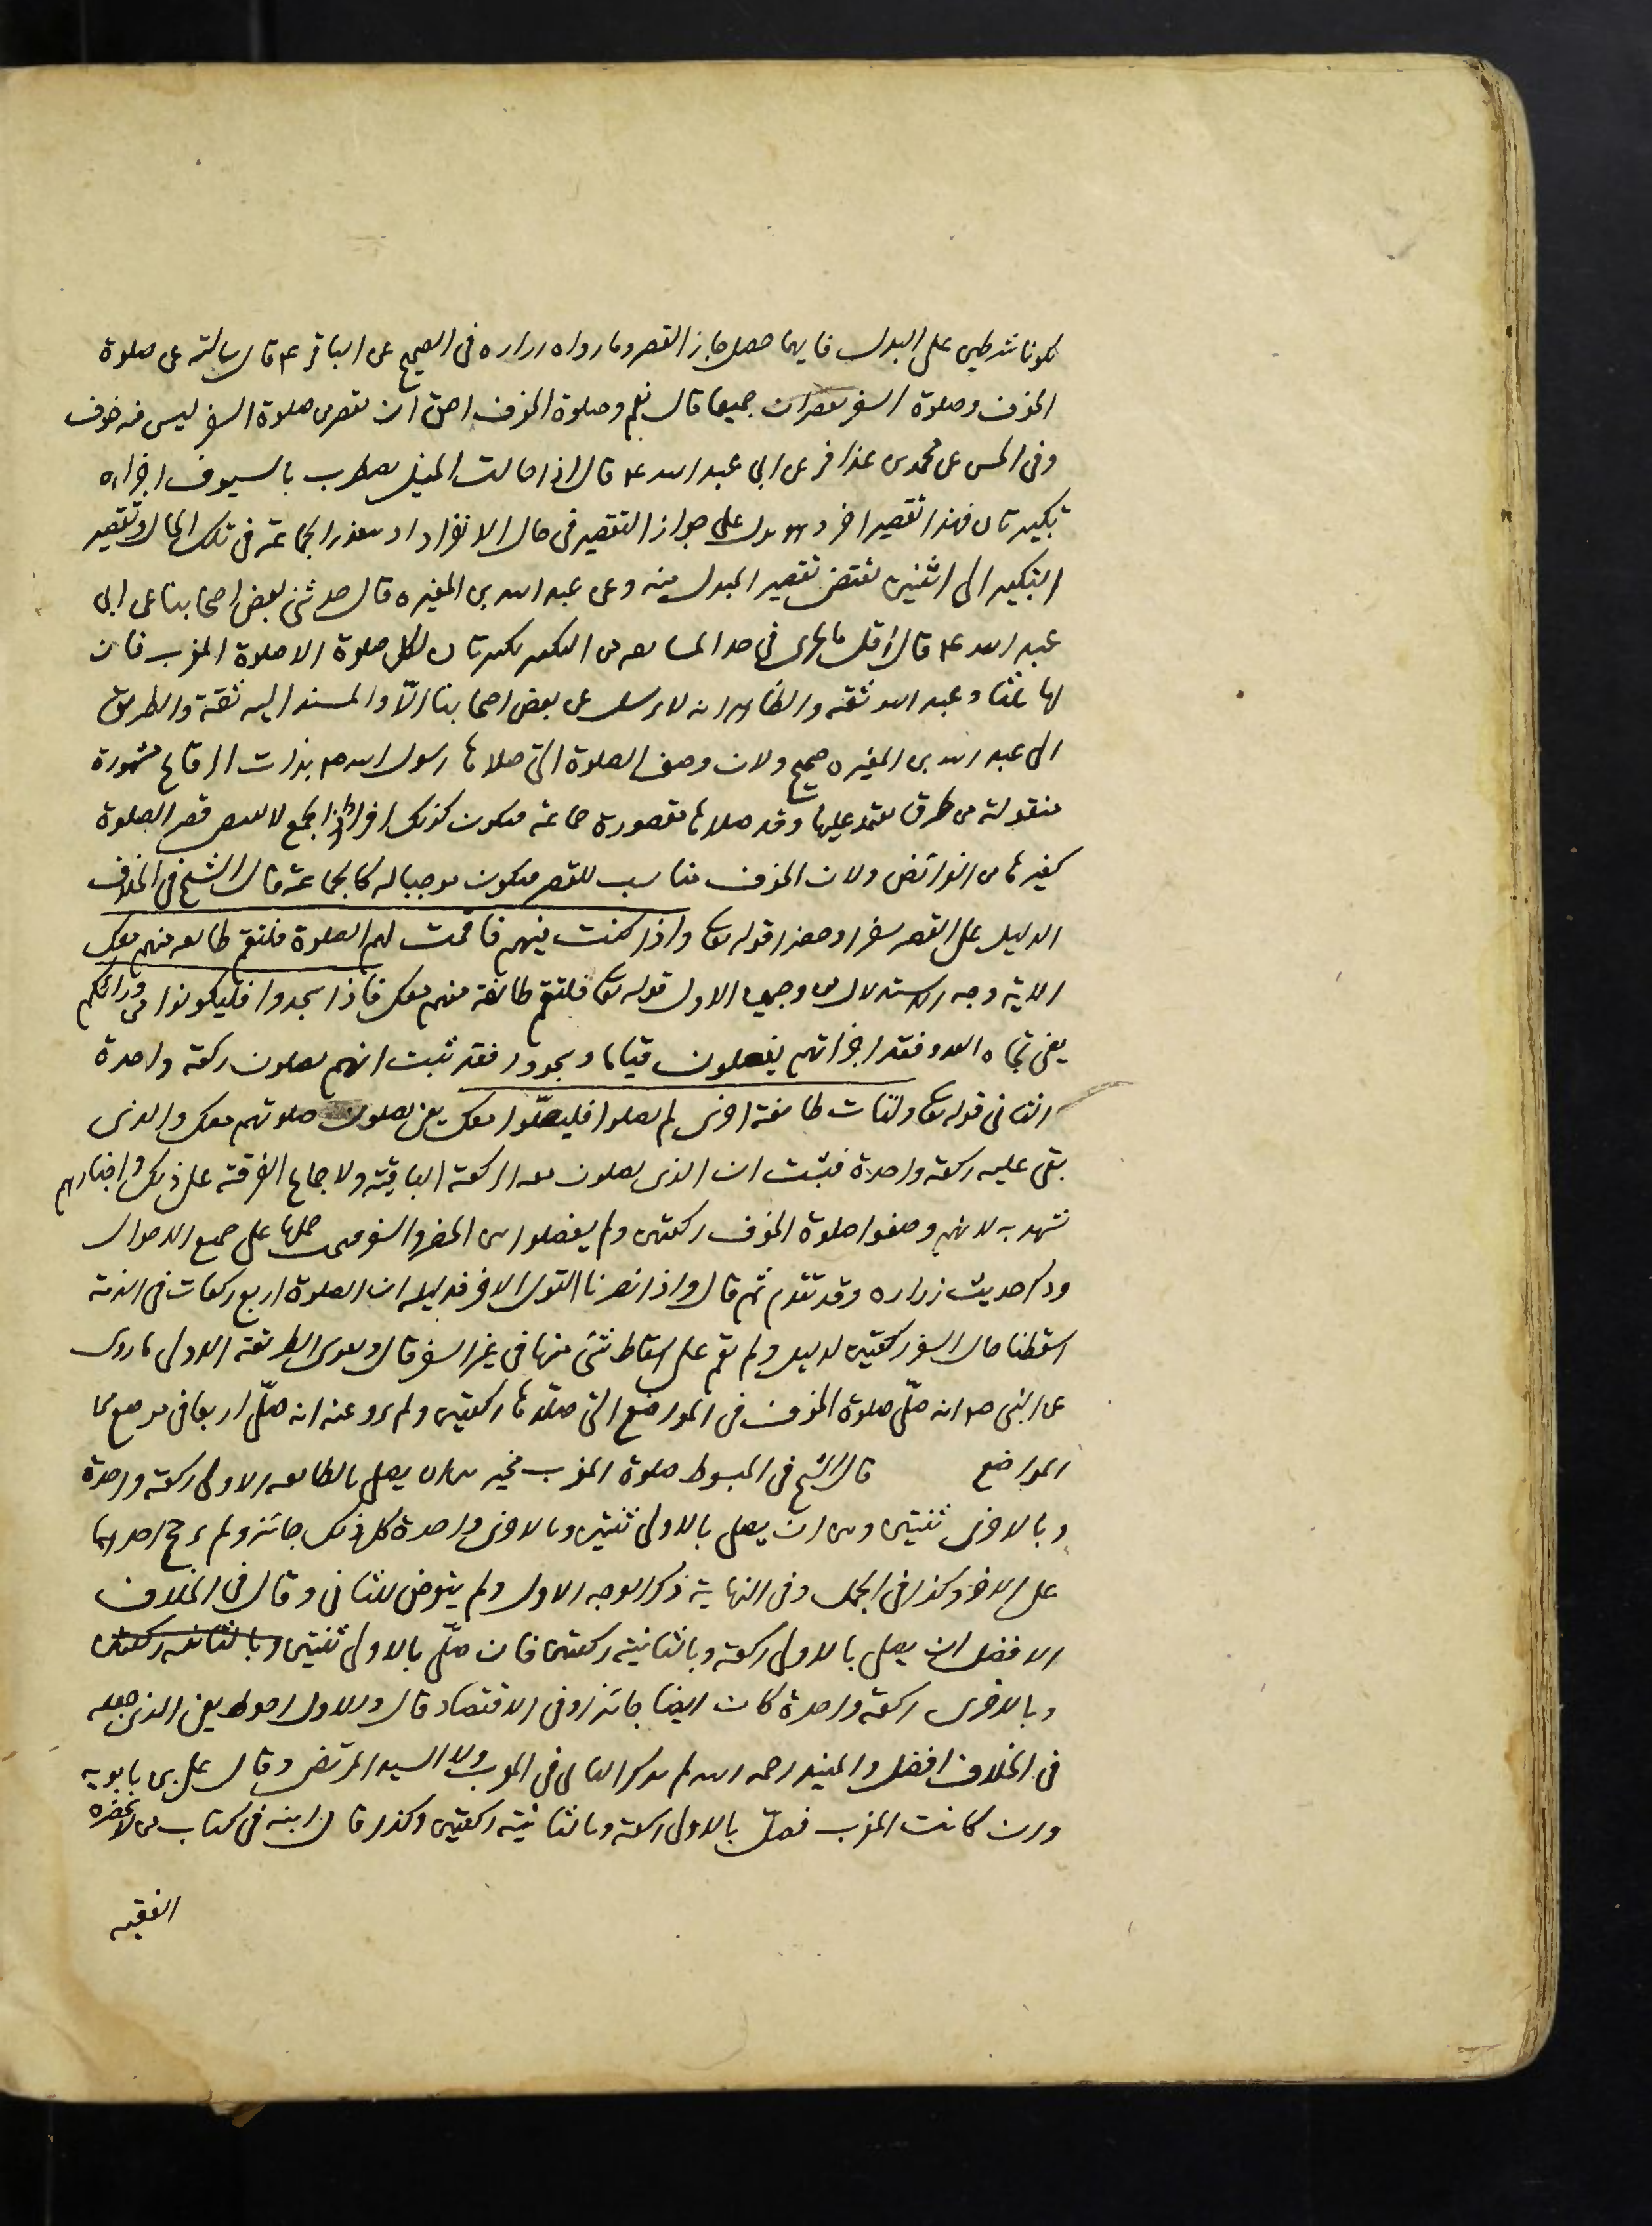 يكونا شرطين على البدل فايهما حصل جاز القصر وما رواه زراره فى الصحيح عن الباقر ع قال سالته عن صلوة
الخوف وصلوة السفر تقصران جميعا قال نعم وصلوة الخوف احق ان تقصر من صلوة السفر ليس فيه خوف
وفى الحسن عن محمد بن عذافر عن ابى عبد الله ع قال اذا جالت الخيل تضطرب بالسيوف اجزاه
تكبيرتان فهذا تقصير اخر وهو يدل على جواز التقصير فى حال الانفراد اذ يتعذر الجماعة فى تلك الحال وتقصير
التكبير الى اثنين يقتضى تقصير المبدل منه وعن عبد الله بن المغيره قال حدثنى بعض اصحابنا عن ابى
عبد الله ع قال اقل ما يجزى فى حد المسايفه من التكبير تكبيرتان لكل صلوة الا صلوة المغرب فان
لها ثلثا وعبد الله ثقة والظاهر انه لا يرسل عن بعض اصحابنا الّا والمسند اليه ثقة والطريق
الى عبد الله بن المغيره صحيح ولان وصف الصلوة التى صلاها رسول الله ص بذات الرقاع مشهورة
منقولة من طرق يعتمد عليها وقد صلاها مقصورة جماعة فيكون كذلك افرادا اذ الجمع لا يقتضى قصر الصلوة
كغيرها من الفرائض ولان الخوف مناسب للقصر فيكون موجبا له كالجماعة قال الشيخ فى الخلاف
الدليل على القصر سفرا وحضرا قوله تعالى واذا كنت فيهم فاقمت لهم الصلوة فلتقم طائفه منهم معك
الاية وجه الاستدلال من وجهين الاول قوله تعالى فلتقم طائفة منهم معك فاذا سجدوا فليكونوا من ورائكم
يعنى تجاه العدو فقد اخبر انهم يفعلون قياما وسجودا فقد ثبت انهم يصلون ركعة واحدة
الثانى قوله تعالى ولتات طائفة اخرى لم يصلوا فليصلّوا معك يعنى يصلون صلوتهم معك والذى
بقى عليه ركعة واحدة فثبت ان الذى يصلون معه الركعة الباقية ولاجماع الفرقة على ذلك واخبارهم
تشهد به لانهم وصفوا صلوة الخوف ركعتين ولم يفصلوا بين الحضر والسفر فيجب حملها على جميع الاحوال
وذكر حديث زراره وقد تقدم ثم قال واذا نصرنا القول الاخر فدليله ان الصلوة اربع ركعات فى الذمة
اسقطنا حال السفر ركعتين لدليل ولم يقم على اسقاط شئ منها فى غير السفر قال ويقوى الطريقة الاولى ما روى
عن النبى ص انه صلّى صلوة الخوف فى المواضع التى صلّاها ركعتين ولم يرو عنه انه صلّى اربعا فى موضع من
المواضع قال الشيخ فى المبسوط صلوة المغرب مخير بين ان يصلى بالطائفه الاولى ركعة واحدة
وبالاخرى ثنتين وبين ان يصلى بالاولى ثنتين وبالاخرى واحدة كل ذلك جائز ولم يرجح احداهما
على الاخرى وكذا فى الجمل وفى النهاية ذكر الوجه الاول ولم يتعرض للثانى وقال فى الخلاف
الافضل ان يصلى بالاولى ركعة وبالثانية ركعتين فان صلّى بالاولى ثنتين وبالثانيه ركعتين
وبالاخرى ركعة واحدة كان ايضا جائزا وفى الاقتصاد قال والاول احوط يعنى الذى جعله
فى الخلاف افضل والمفيد رحمه الله لم يذكر الثانى فى المغرب ولا السيد المرتضى وقال على بن بابويه
وان كانت المغرب فصلّ بالاولى ركعة وبالثانية ركعتين وكذا قال ابنه فى كتاب من لا يحضره
الفقيه